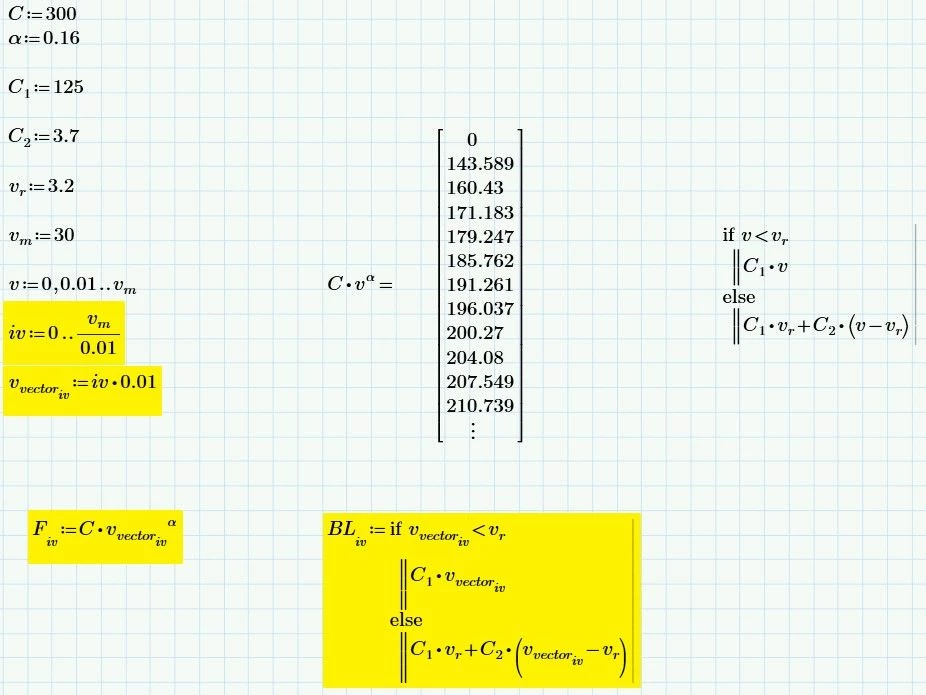 C:=300
α:=0.16
C₁:=125
C₂:=3.7
vᵣ:=3.2
vₘ:=30
v:=0,0.01..vₘ
iv:=0..vₘ/0.01
v_vector_iv:=iv•0.01
C•v^α=
0
143.589
160.43
171.183
179.247
185.762
191.261
196.037
200.27
204.08
207.549
210.739
⋮
if v<vᵣ
‖C₁•v
else
‖C₁•vᵣ+C₂•(v−vᵣ)
F_iv:=C•v_vector_iv^α
BL_iv:=if v_vector_iv<vᵣ
‖C₁•v_vector_iv
else
‖C₁•vᵣ+C₂•(v_vector_iv−vᵣ)